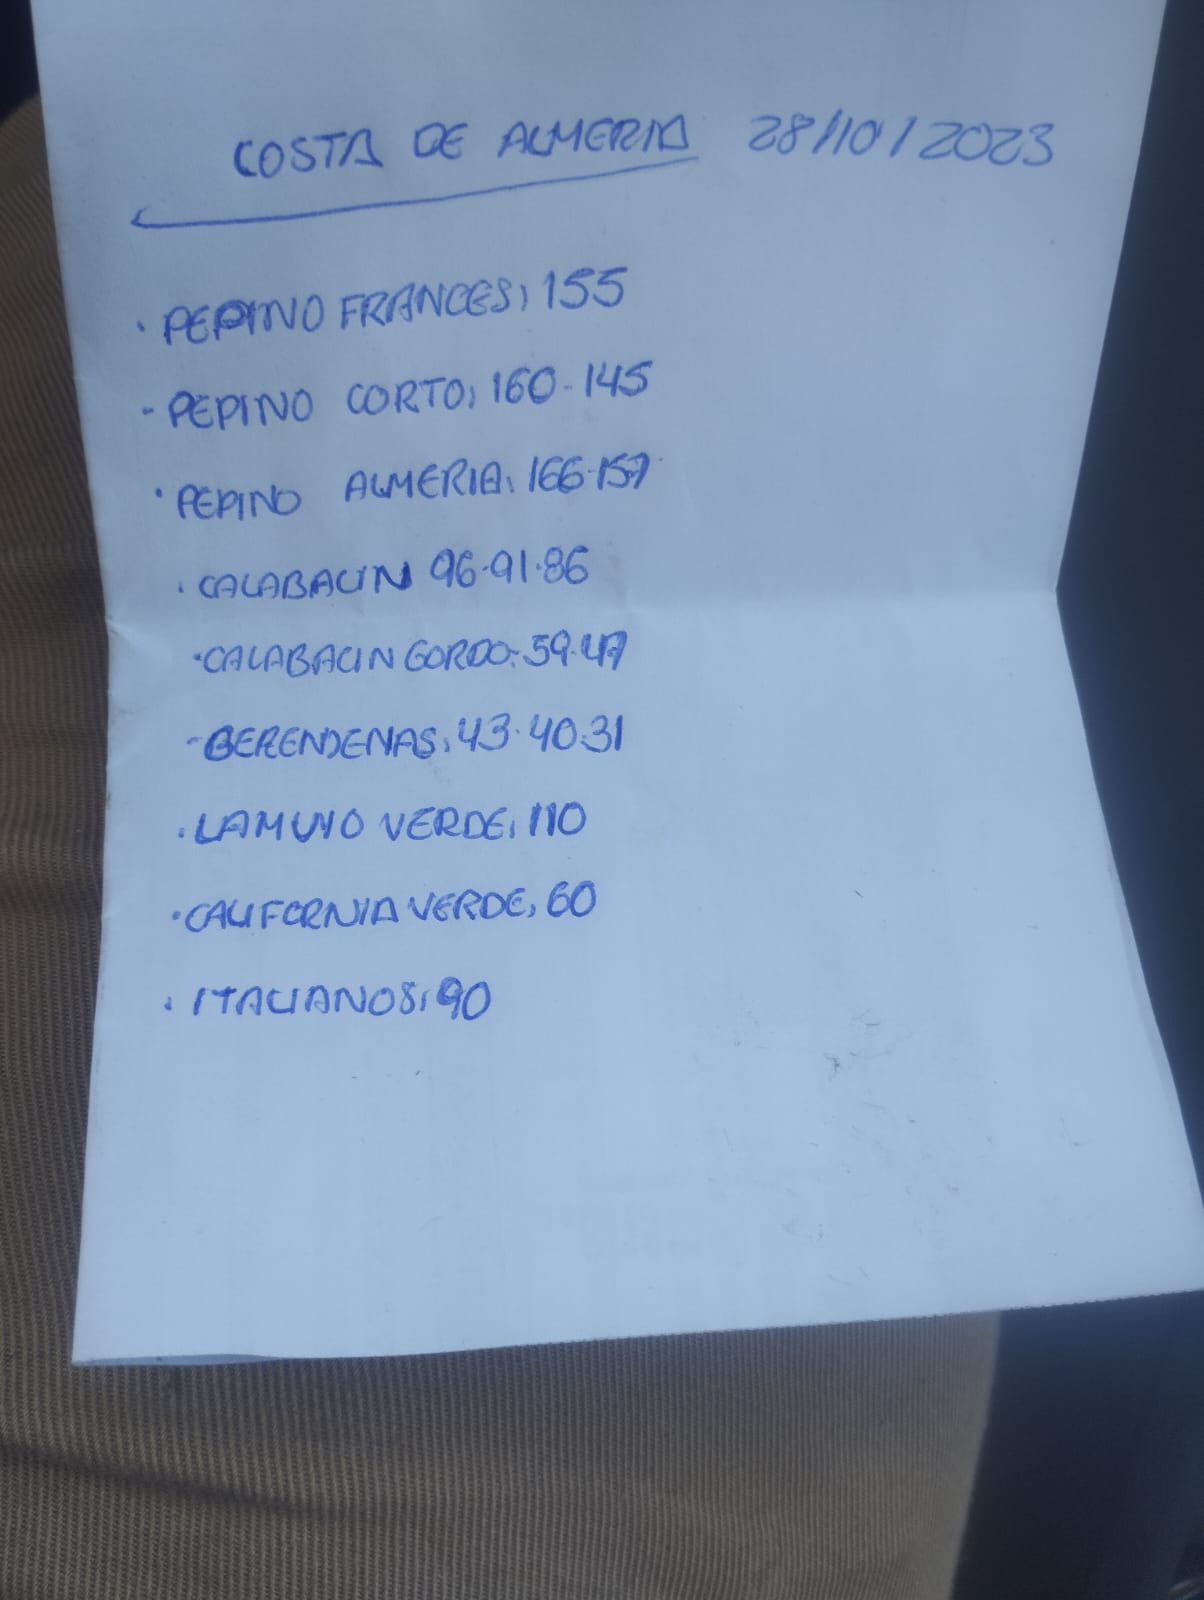 COSTA DE ALMERIA 28/10/2023
· PEPINO FRANCES, 155
- PEPINO CORTO, 160-145
· PEPINO ALMERIA, 166-157
· CALABACIN 96-91-86
· CALABACIN GORDO: 59-47
- BERENDENAS, 43-40-31
· LAMUYO VERDE, 110
· CALIFORNIA VERDE, 60
· ITALIANOS, 90